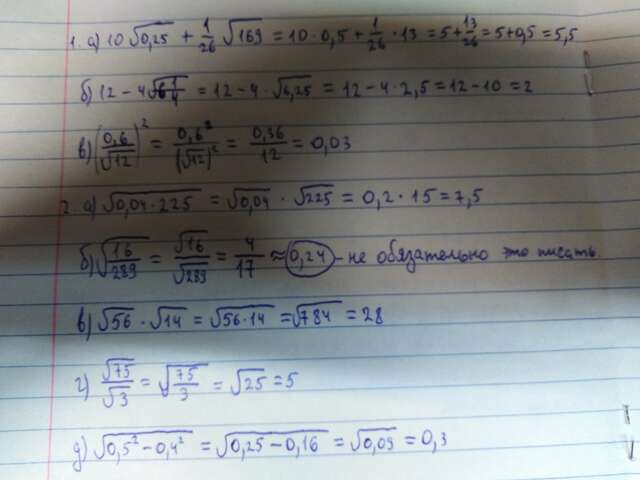 1. а) 10√0,25 + 1/26 √169 = 10 · 0,5 + 1/26 · 13 = 5 + 13/26 = 5 + 0,5 = 5,5
б) 12 − 4√6 1/4 = 12 − 4 · √6,25 = 12 − 4 · 2,5 = 12 − 10 = 2
в) (0,6/√12)² = 0,6²/(√12)² = 0,36/12 = 0,03
2. а) √0,04 · 225 = √0,04 · √225 = 0,2 · 15 = 7,5
б) √16/289 = √16/√289 = 4/17 ≈ 0,24 - не обязательно это писать.
в) √56 · √14 = √56 · 14 = √784 = 28
г) √75/√3 = √75/3 = √25 = 5
д) √0,5² − 0,4² = √0,25 − 0,16 = √0,09 = 0,3